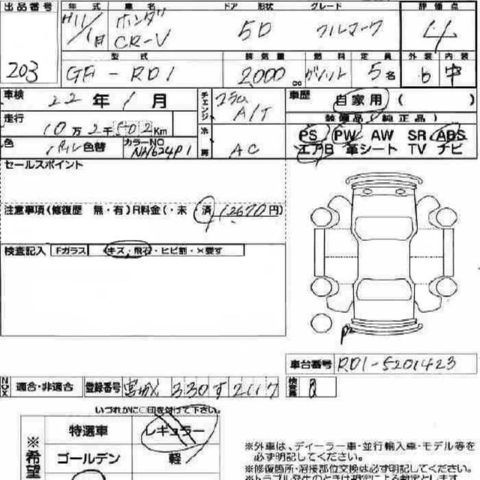 出品番号 年式 車名 ドア 形状 グレード 評価点
11/1月 ホンダ CR-V 5D フルマーク 4
型式 排気量 燃料 定員 外装 内装
203 GF-RD1 2000cc ガソリン 5名 b 中
車検 22年1月 チェンジ コラム A/T 車歴 自家用 ( )
走行 10万2千502Km 冷房 AC 装備品 (純正品)
色 パール 色替 カラーNO NH624P1 PS PW AW SR ABS
エアB 革シート TV ナビ
セールスポイント
注意事項(修復歴 無・有)R料金(・未 済 12670円)
検査記入 Fガラス キズ・飛石・ヒビ割・×要す
P2
車台番号 RD1-5201423
NOX 適合・非適合 登録番号 宮城 330す2117 検査員
いづれかに○印を付けて下さい。
※希望 特選車 レギュラー
ゴールデン 軽
※外車は、ディーラー車・並行輸入車・モデル等を
必ず明記してください。
※修復箇所・溶接部位交換は必ず明記してください。
※トラブル発生のときは規定による裁定とします。